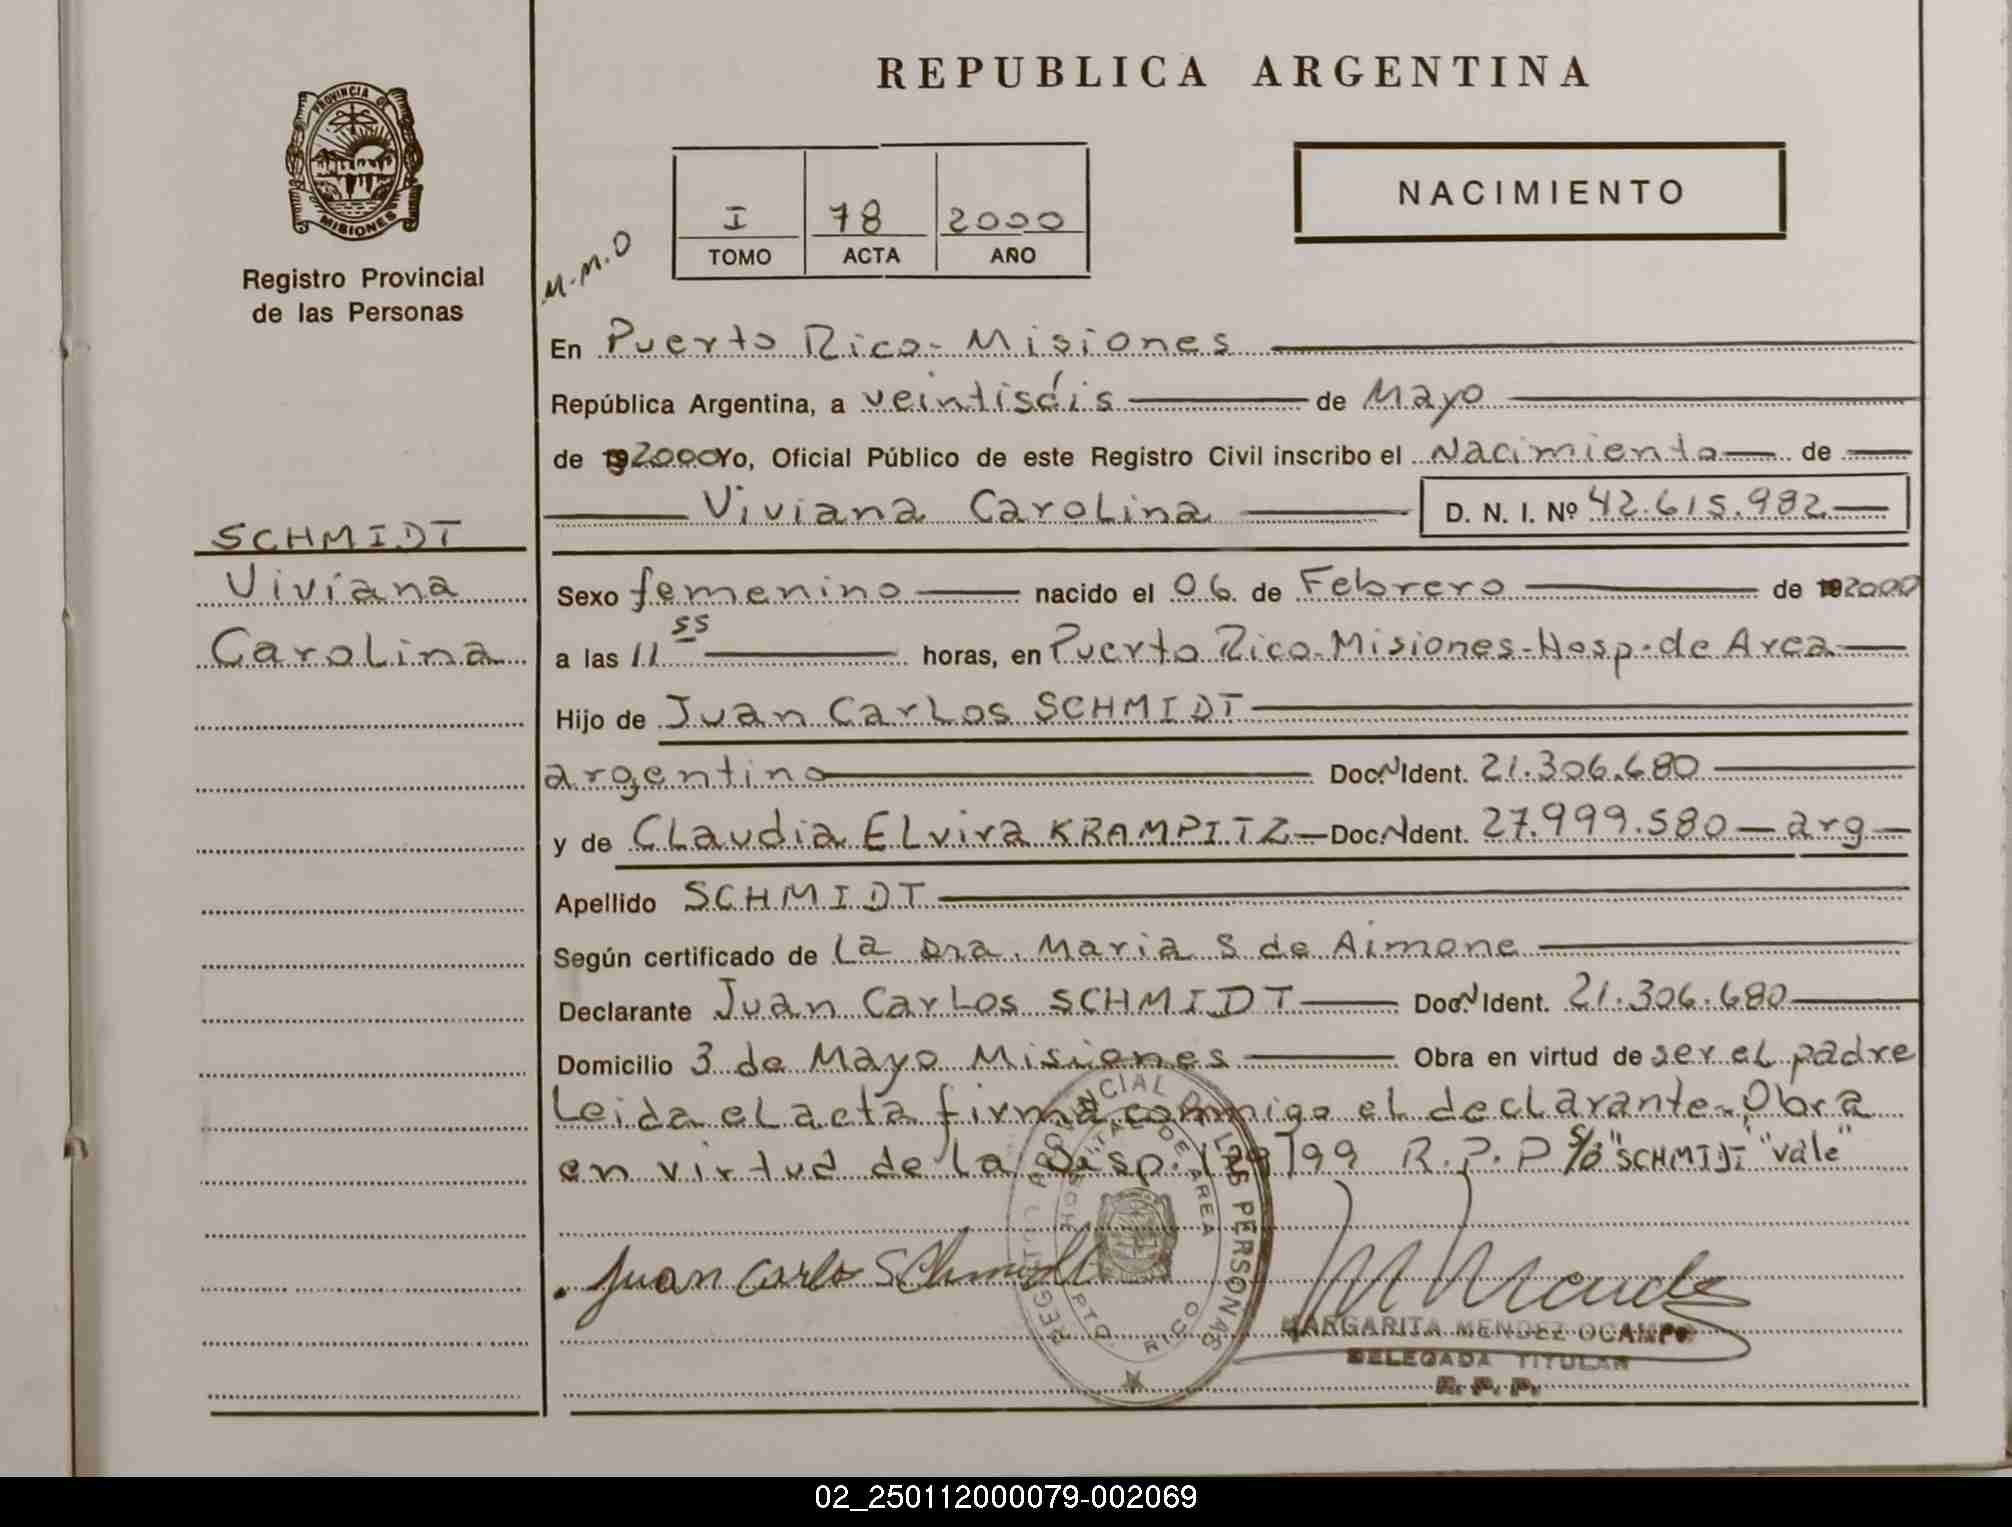 REPUBLICA ARGENTINA
PROVINCIA DE
MISIONES
Registro Provincial
de las Personas
I 78 2000
TOMO ACTA AÑO
NACIMIENTO
M.M.O
En Puerto Rico - Misiones
República Argentina, a veintiséis de Mayo
de 19 2000 Yo, Oficial Público de este Registro Civil inscribo el Nacimiento de
Viviana Carolina D. N. I. Nº 42.615.982
SCHMIDT
Viviana
Carolina
Sexo femenino nacido el 06 de Febrero de 19 2000
a las 11 55 horas, en Puerto Rico - Misiones - Hosp. de Area
Hijo de Juan Carlos SCHMIDT
argentino Doc. N Ident. 21.306.680
y de Claudia Elvira KRAMPITZ Doc. N Ident. 27.999.580 - arg -
Apellido SCHMIDT
Según certificado de la Dra. Maria S de Aimone
Declarante Juan Carlos SCHMIDT Doc. N Ident. 21.306.680
Domicilio 3 de Mayo Misiones Obra en virtud de ser el padre
Leida el acta firma conmigo el declarante. Obra
en virtud de la Disp. 129/99 R.P.P S/b "SCHMIDT" "vale"
Juan Carlo Schmidt
REGISTRO PROVINCIAL DE LAS PERSONAS
HOSPITAL DE AREA
PTO. RICO
M Mende
MARGARITA MENDEZ OCAMPO
DELEGADA TITULAR
R. P. P.
02_250112000079-002069